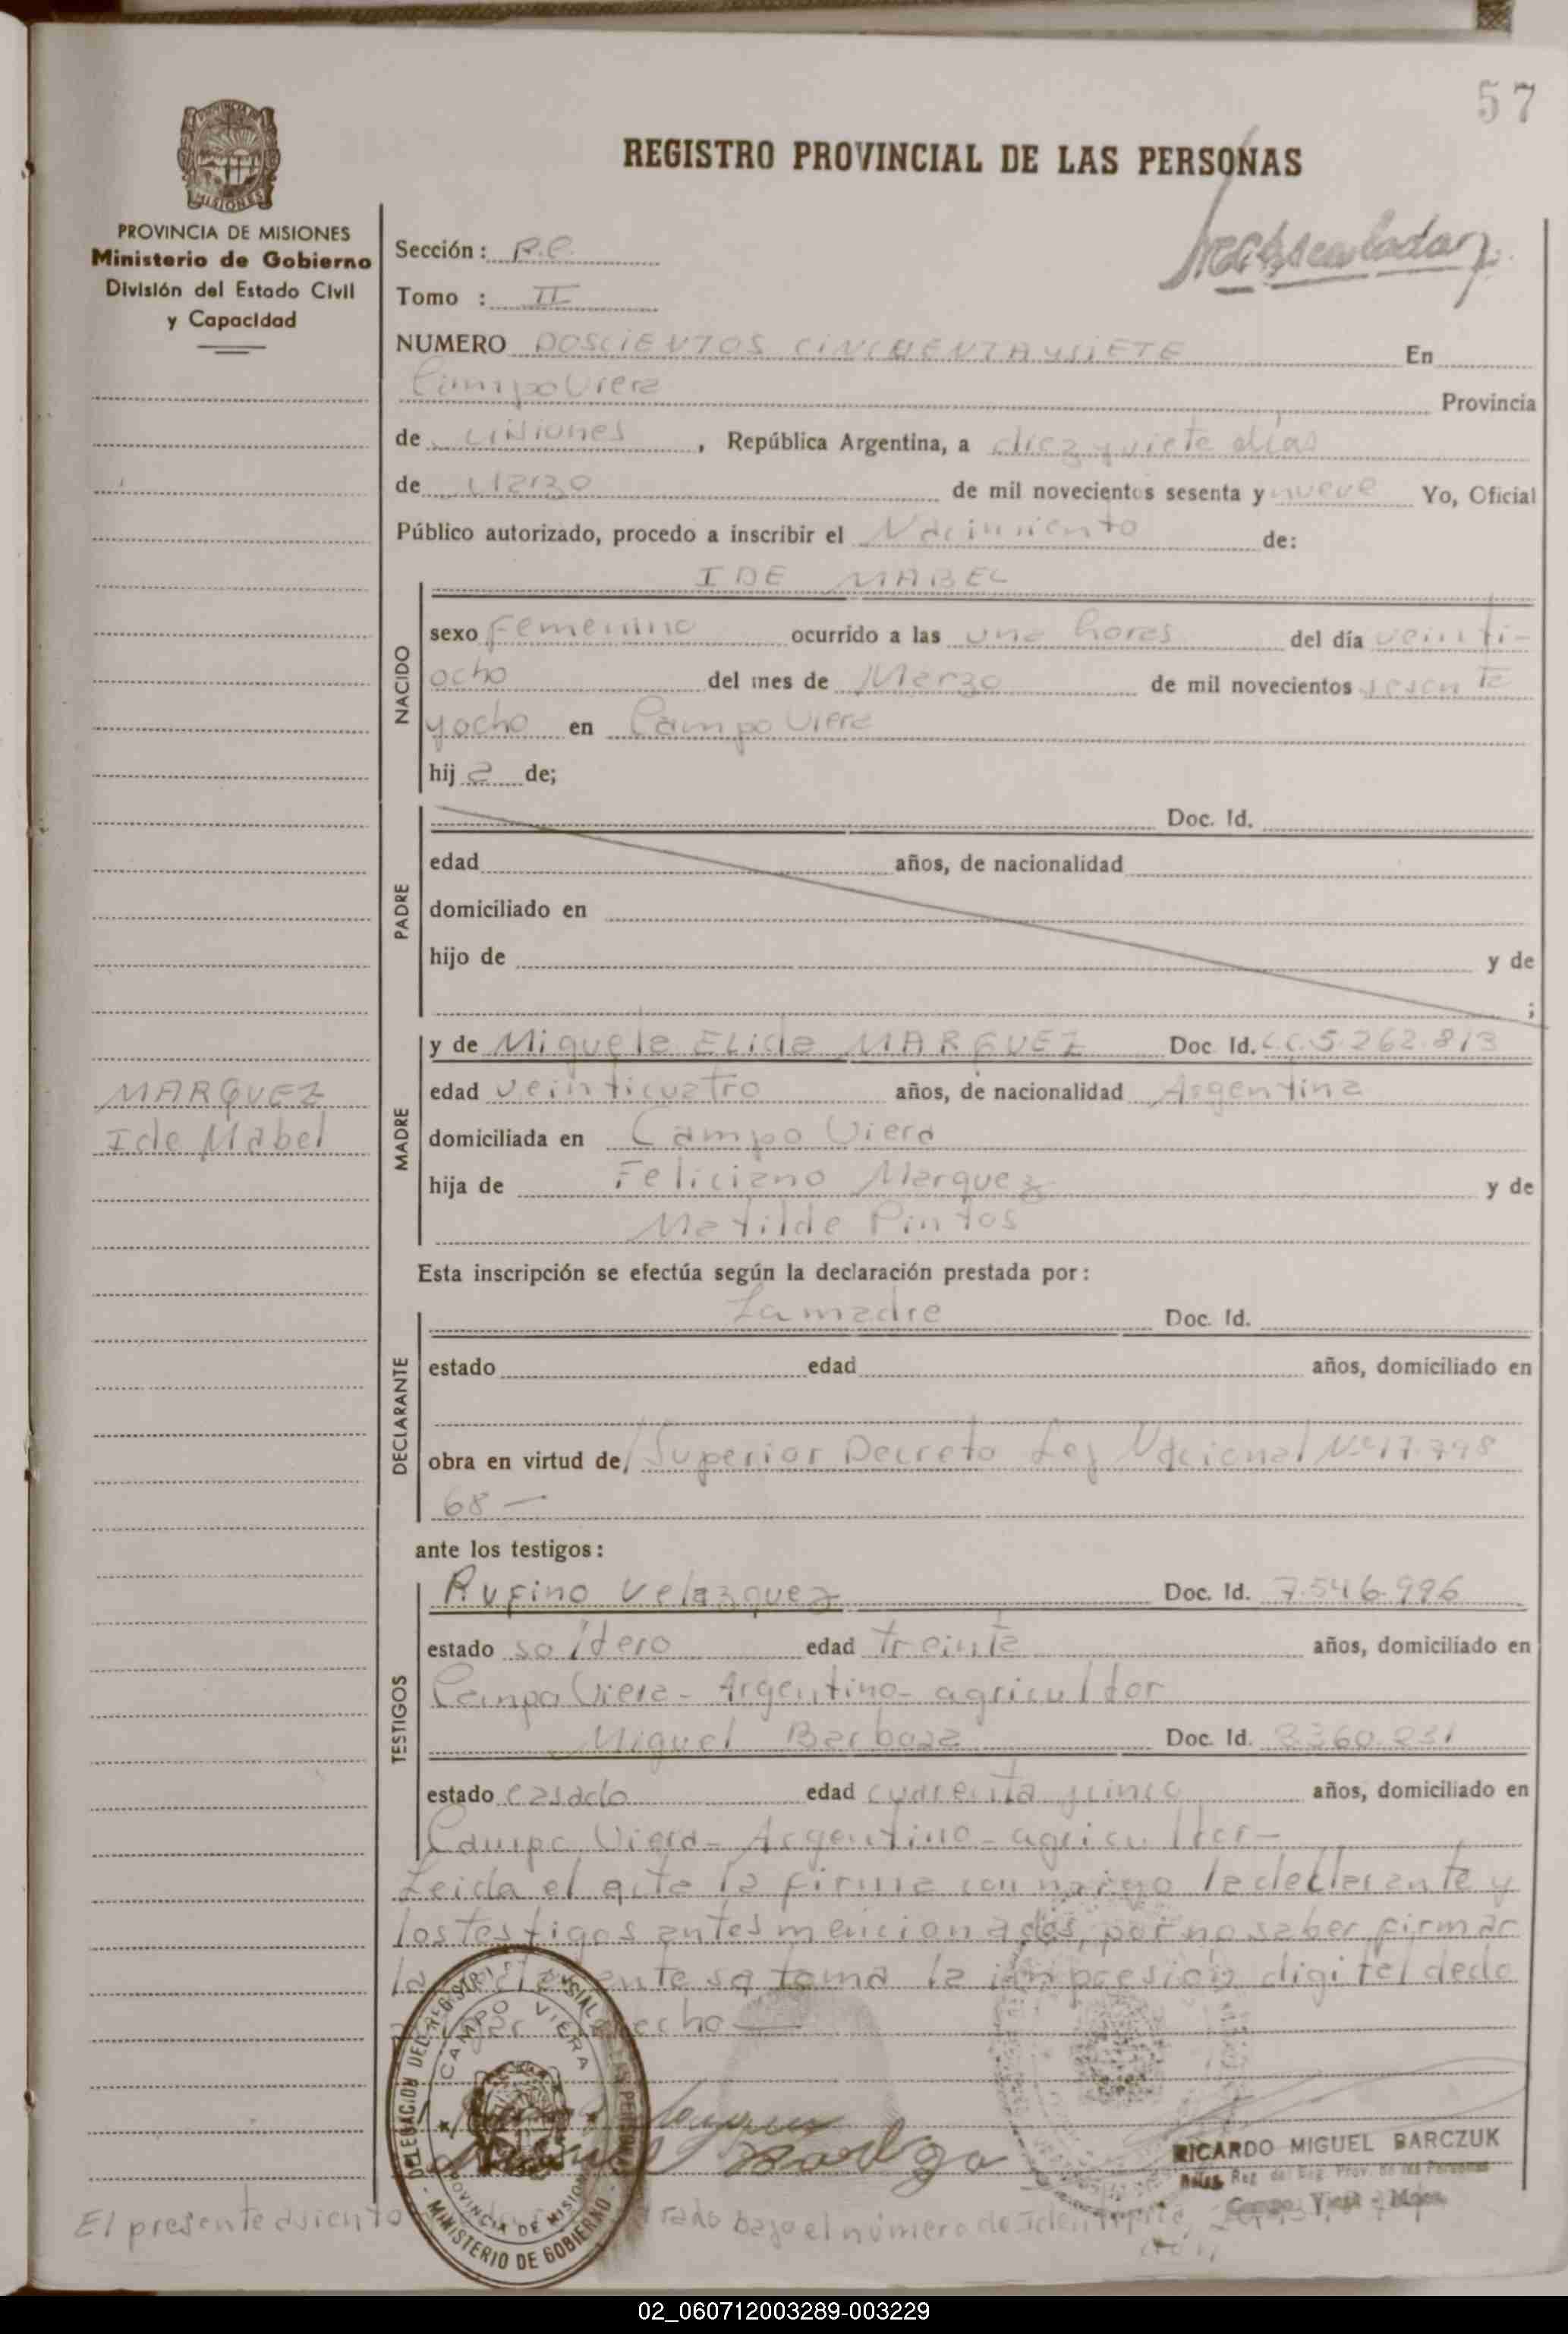 57
REGISTRO PROVINCIAL DE LAS PERSONAS
PROVINCIA DE MISIONES
Ministerio de Gobierno
División del Estado Civil
y Capacidad
Sección: R.C.
Tomo : II
NUMERO DOSCIENTOS CINCUENTA Y SIETE En
Campo Viera Provincia
de Misiones, República Argentina, a diez y siete días
de Marzo de mil novecientos sesenta y nueve Yo, Oficial
Público autorizado, procedo a inscribir el Nacimiento de:
NACIDO
IDE MABEL
sexo Femenino ocurrido a las una horas del día veinti-
ocho del mes de Marzo de mil novecientos sesenta
y ocho en Campo Viera
hij a de;
PADRE
Doc. Id.
edad años, de nacionalidad
domiciliado en
hijo de y de
;
MADRE
y de Miguela Elida MARQUEZ Doc Id. L.C.5.262.813
edad veinticuatro años, de nacionalidad Argentina
MARQUEZ
Ide Mabel
domiciliada en Campo Viera
hija de Feliciano Marquez y de
Matilde Pintos
Esta inscripción se efectúa según la declaración prestada por:
DECLARANTE
La madre Doc. Id.
estado edad años, domiciliado en
obra en virtud de, Superior Decreto Ley Nacional Nº 17.798
68 —
ante los testigos:
TESTIGOS
Rufino Velazquez Doc. Id. 7.546.996
estado soltero edad treinta años, domiciliado en
Campo Viera - Argentino - agricultor
Miguel Barboza Doc. Id. 8360.231
estado casado edad cuarenta y cinco años, domiciliado en
Campo Viera - Argentino - agricultor -
Leida el acta la firma conmigo la declarante y
los testigos antes mencionados, por no saber firmar
la se toma la impresión digital dedo
DELEGACION DEL REGISTRO PROVINCIAL DE LAS PERSONAS
CAMPO VIERA
PROVINCIA DE MISIONES
- MINISTERIO DE GOBIERNO -
RICARDO MIGUEL BARCZUK
Reg. del Reg. Prov. de las Personas
Campo Viera - Mnes.
El presente asiento bajo el número de
02_060712003289-003229